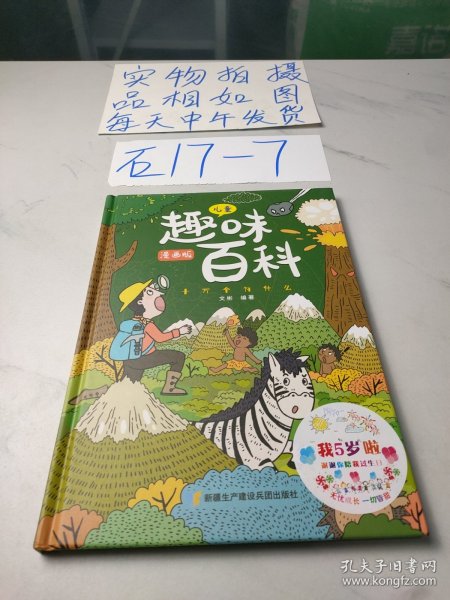 嘉佑
实物拍摄
品相如图
每天中午发货
石17-7
儿童
趣味
漫画版
百科
十万个为什么
文彬 编著
我5岁啦
谢谢你陪我过生日
无忧成长 一切皆能
新疆生产建设兵团出版社
孔夫子旧书网
www.kongfz.com